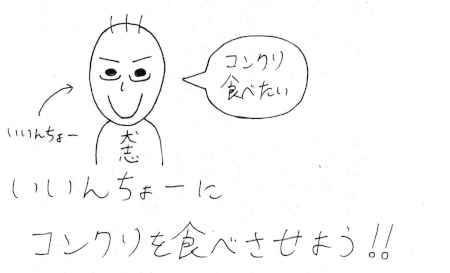 コンクリ
食べたい
いいんちょー
犬志
いいんちょーに
コンクリを食べさせよう!!